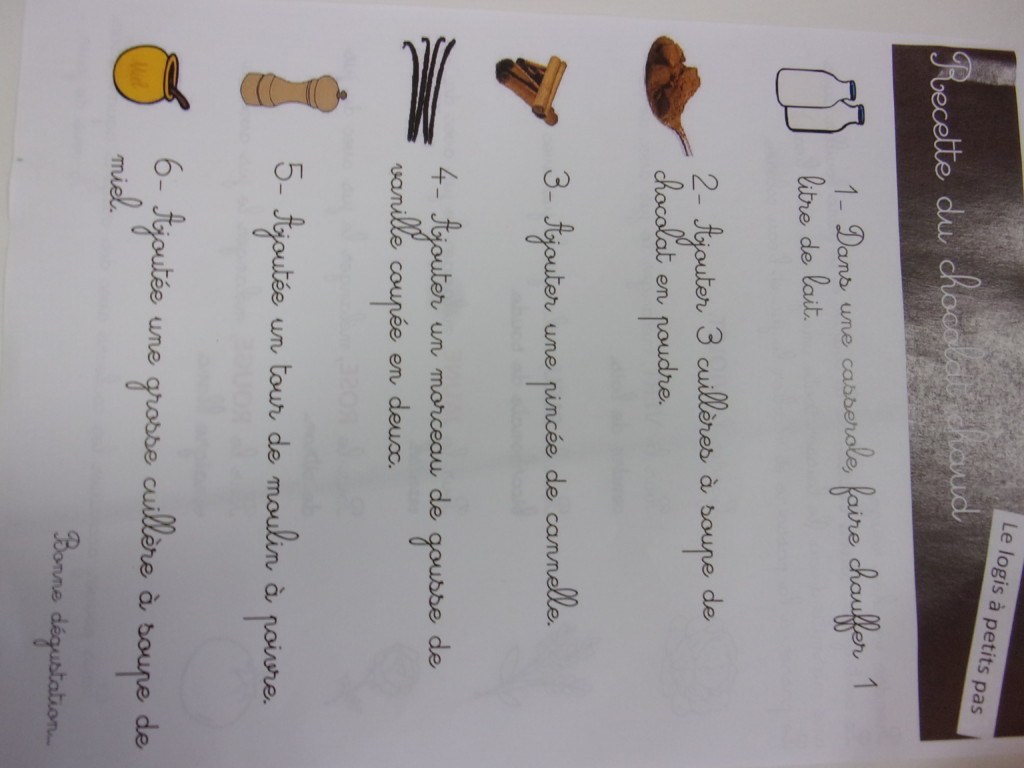 Le logis à petits pas
Recette du chocolat chaud
1- Dans une casserole, faire chauffer 1
litre de lait.
2- Ajouter 3 cuillères à soupe de
chocolat en poudre.
3- Ajouter une pincée de cannelle.
4- Ajouter un morceau de gousse de
vanille coupée en deux.
5- Ajoutée un tour de moulin à poivre.
6- Ajoutée une grosse cuillère à soupe de
miel.
Bonne dégustation...